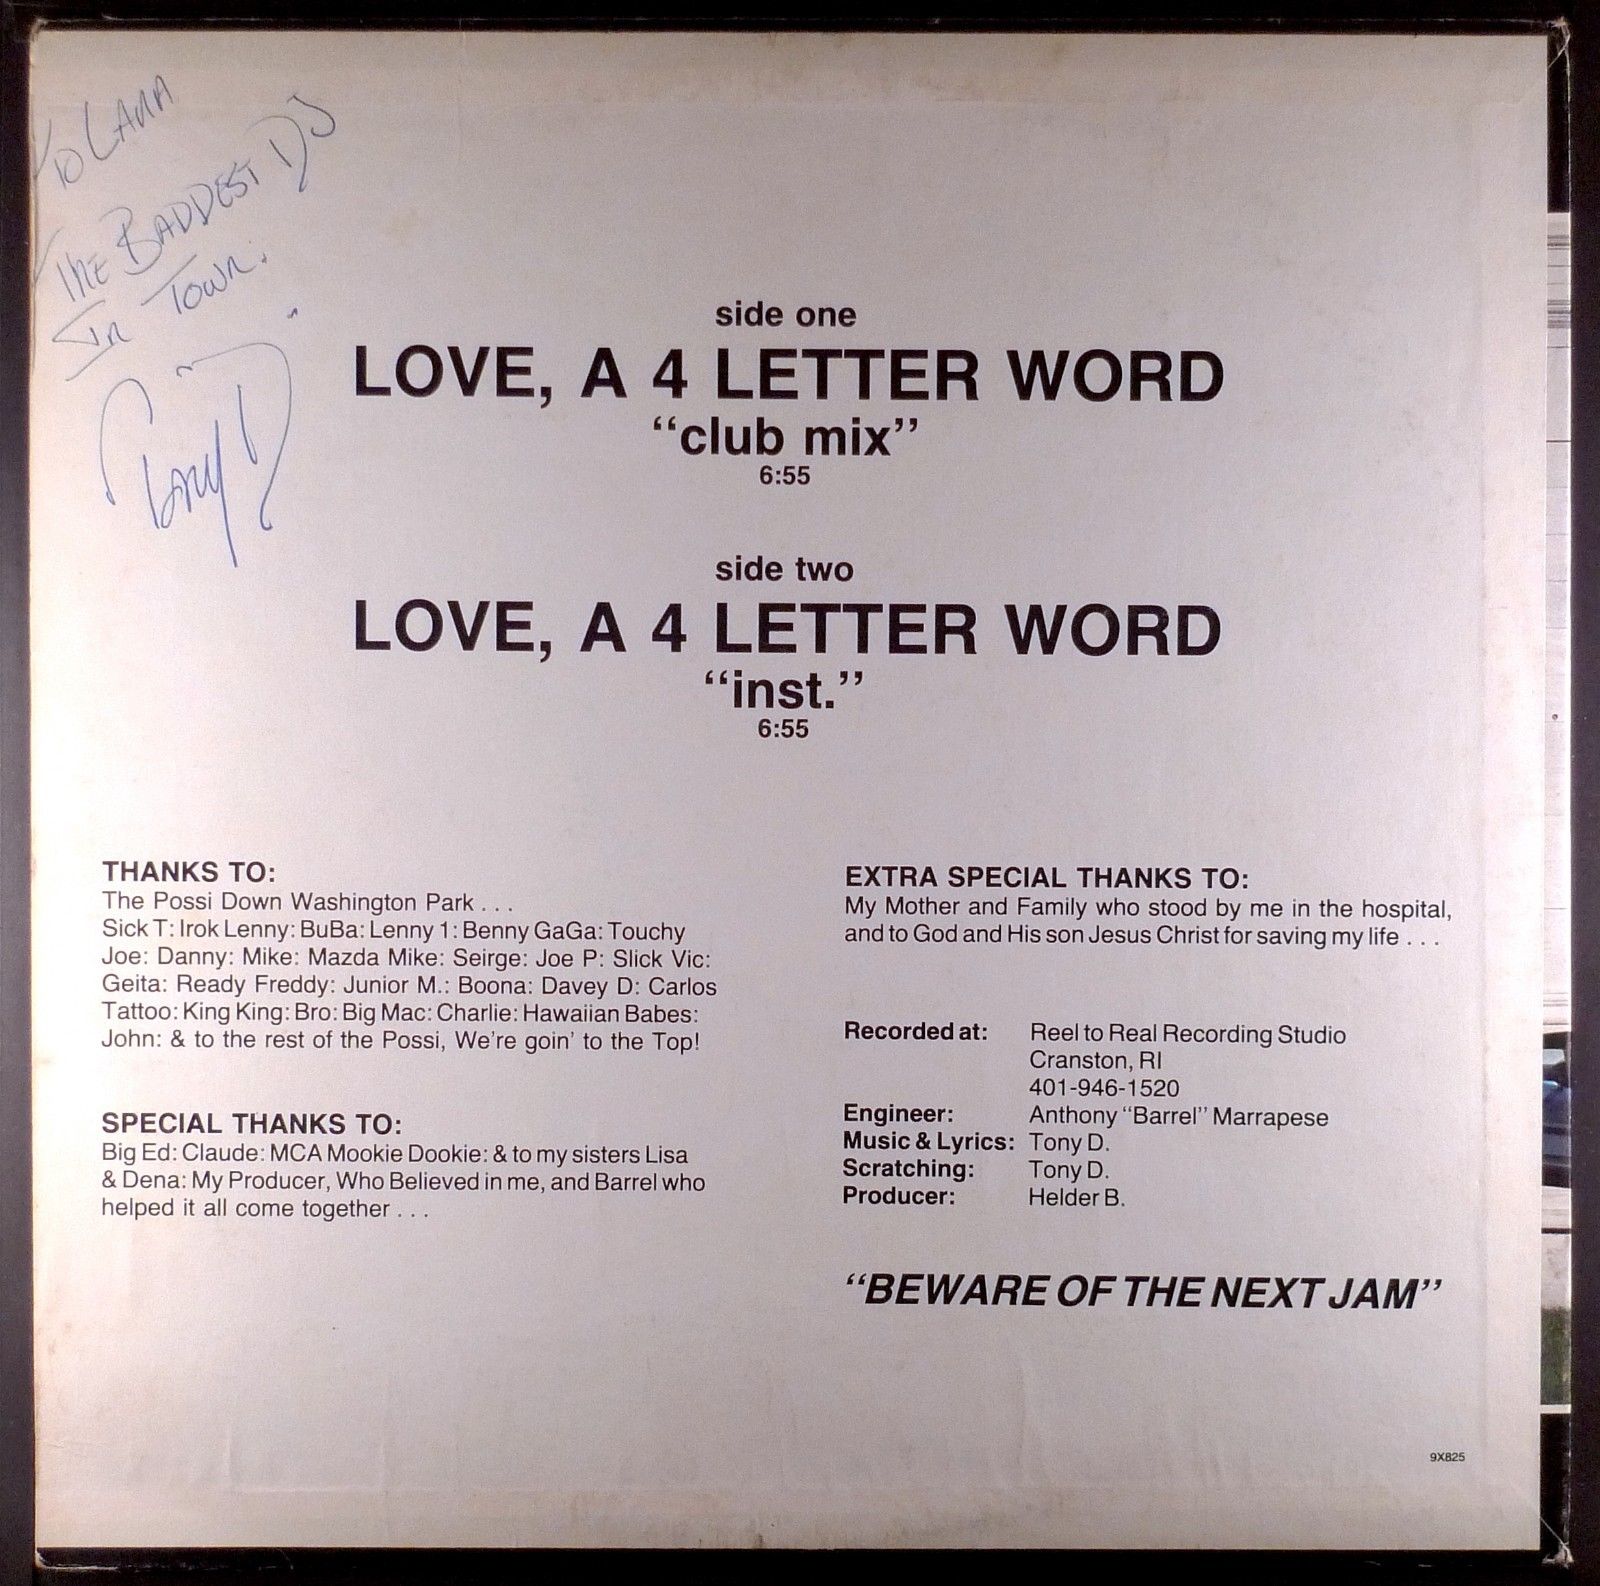 To Lana
The Baddest DJ
In Town.
Tony D
side one
LOVE, A 4 LETTER WORD
“club mix”
6:55
side two
LOVE, A 4 LETTER WORD
“inst.”
6:55
THANKS TO:
The Possi Down Washington Park . . .
Sick T: Irok Lenny: BuBa: Lenny 1: Benny GaGa: Touchy
Joe: Danny: Mike: Mazda Mike: Seirge: Joe P: Slick Vic:
Geita: Ready Freddy: Junior M.: Boona: Davey D: Carlos
Tattoo: King King: Bro: Big Mac: Charlie: Hawaiian Babes:
John: & to the rest of the Possi, We're goin' to the Top!
SPECIAL THANKS TO:
Big Ed: Claude: MCA Mookie Dookie: & to my sisters Lisa
& Dena: My Producer, Who Believed in me, and Barrel who
helped it all come together . . .
EXTRA SPECIAL THANKS TO:
My Mother and Family who stood by me in the hospital,
and to God and His son Jesus Christ for saving my life . . .
Recorded at: Reel to Real Recording Studio
Cranston, RI
401-946-1520
Engineer: Anthony “Barrel” Marrapese
Music & Lyrics: Tony D.
Scratching: Tony D.
Producer: Helder B.
“BEWARE OF THE NEXT JAM”
9X825